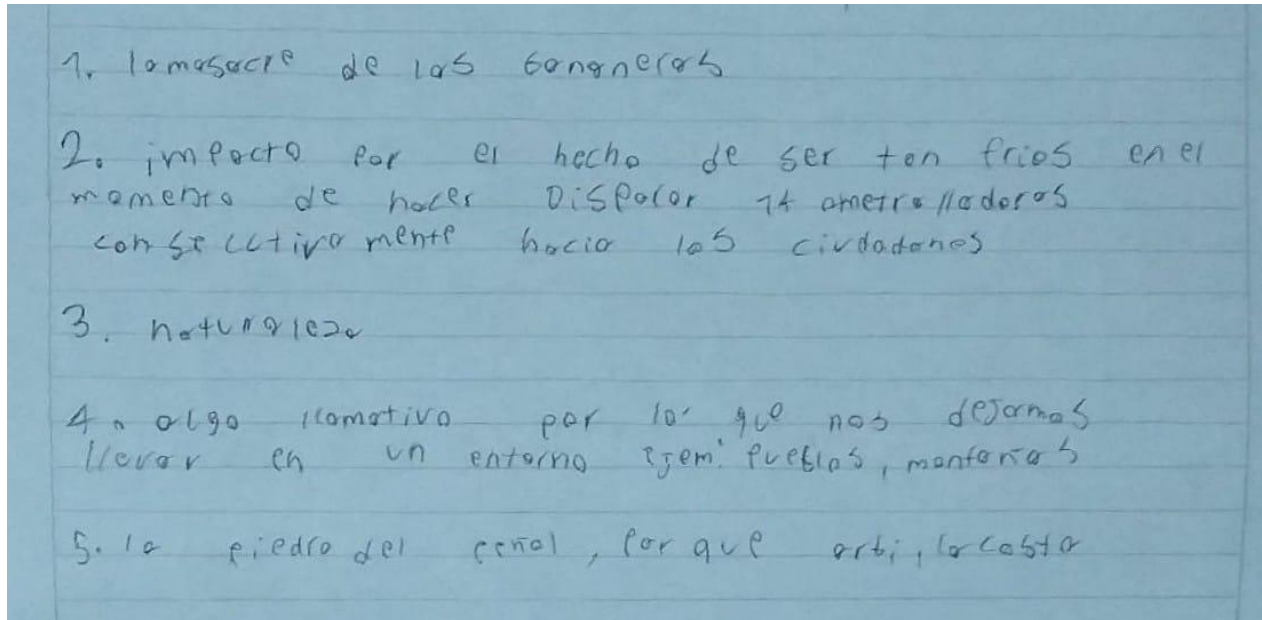 1. la masacre de las bananeras
2. impacto por el hecho de ser tan frios en el
momento de hacer Disparar 14 ametralladoras
consecutivamente hacia los ciudadanos
3. naturaleza
4. algo llamativo por lo que nos dejamos
llevar en un entorno ejem: pueblos, montañas
5. la piedra del peñol, por que arbi, la costa